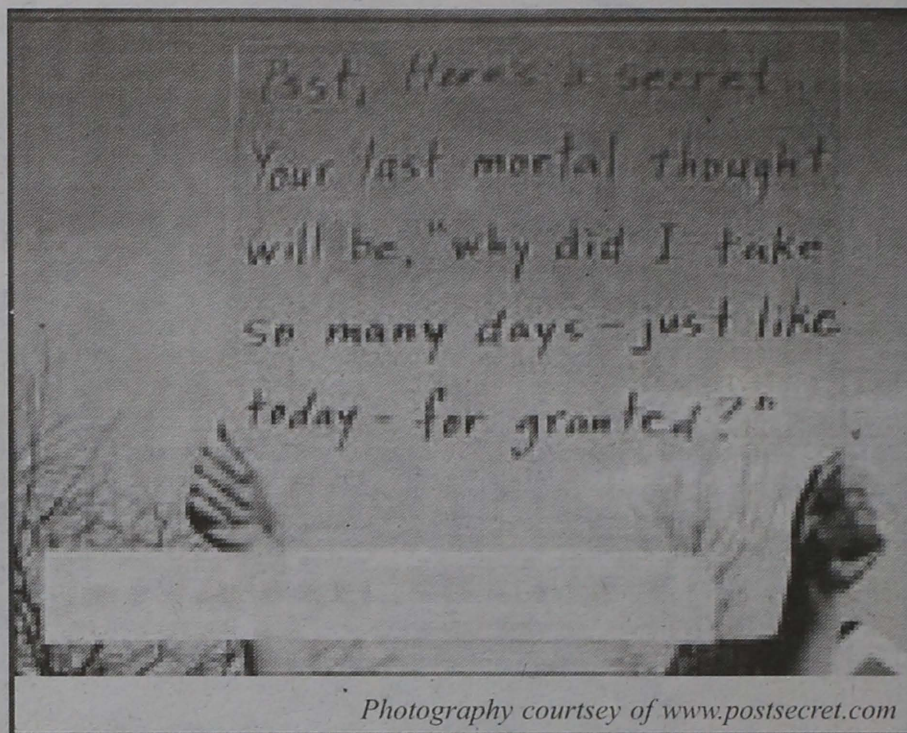 Psst, Here's a secret...
Your last mortal thought
will be, "why did I take
so many days - just like
today - for granted?"
Photography courtsey of www.postsecret.com